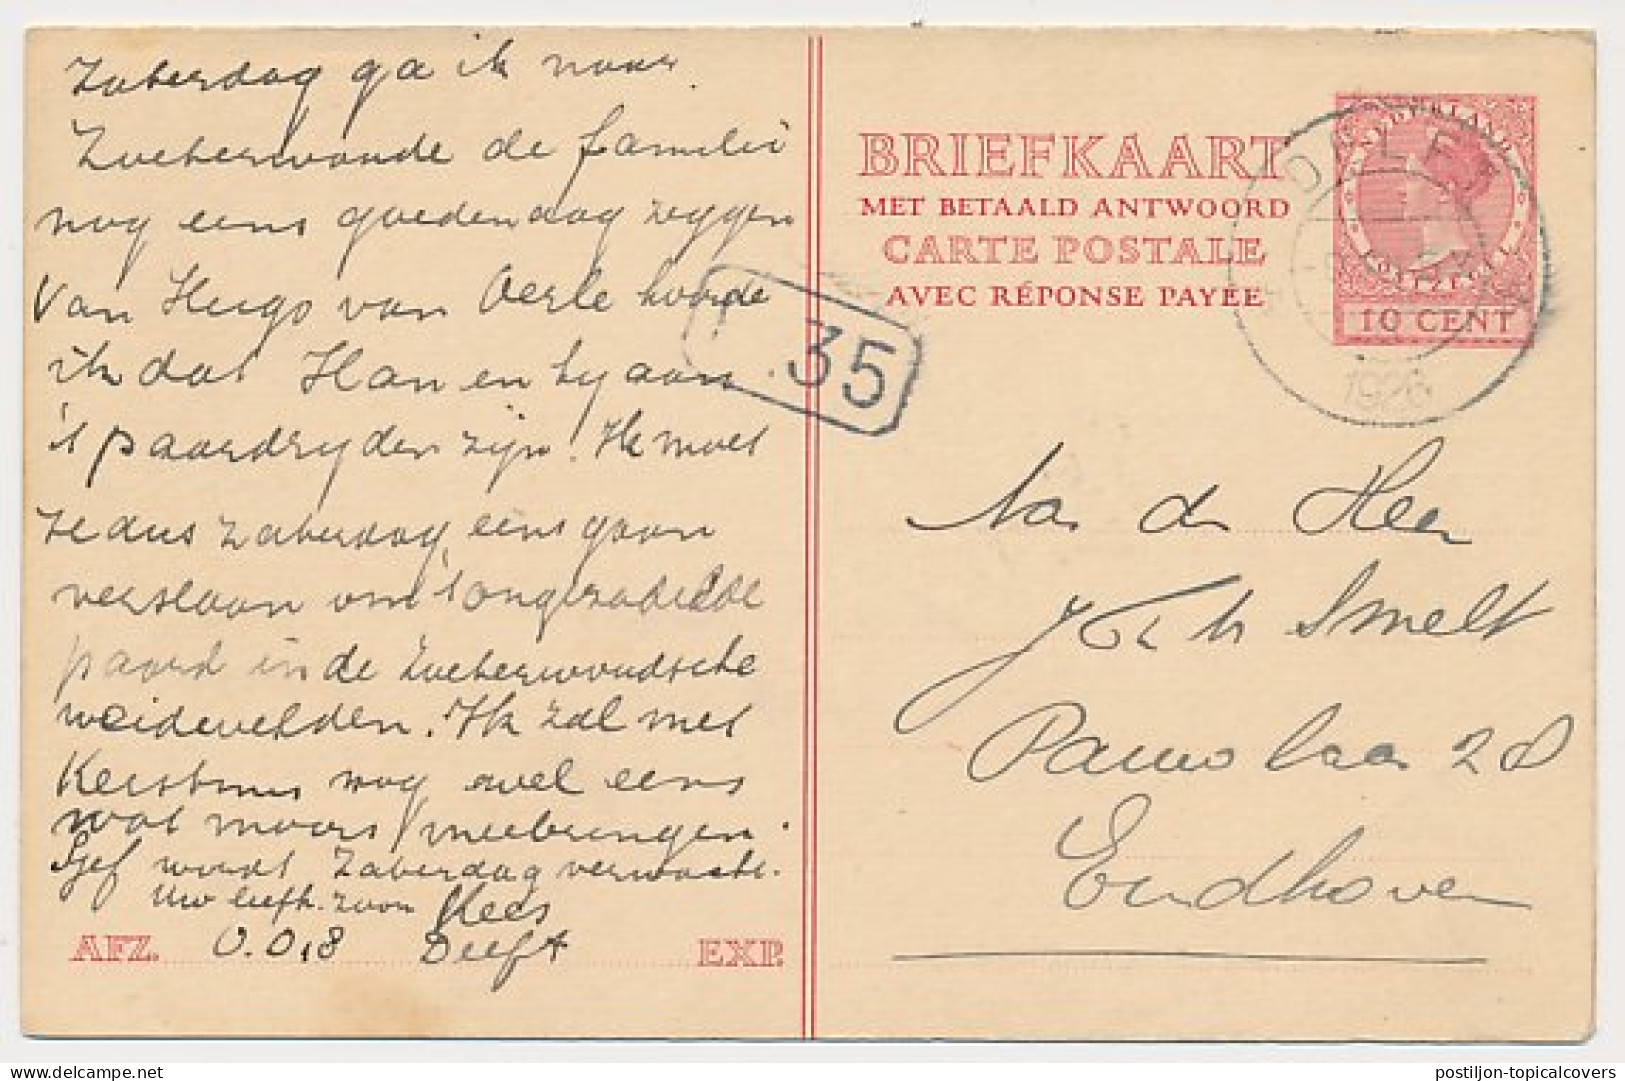 Zaterdag ga ik naar
Zoeterwoude de familie
nog eens goedendag zeggen
Van Hugo van Oerle hoorde
ik dat Han en hij aan
't paardryden zijn. Ik moet
ze dus zaterdag eens gaan
verslaan om 't ongezadelde
paard in de Zoeterwoudsche
weidevelden. Ik zal met
Kerstmis nog wel eens
wat moors meebrengen.
Sjef wordt Zaterdag verwacht.
Uw liefh. zoon Kees
AFZ. O.D. 18 Delft EXP.
BRIEFKAART
MET BETAALD ANTWOORD
CARTE POSTALE
AVEC RÉPONSE PAYÉE
NEDERLAND
10 CENT
DELFT
1926
35
Aan den Heer
Smelt
laan 28
Eindhoven
postiljon-topicalcovers